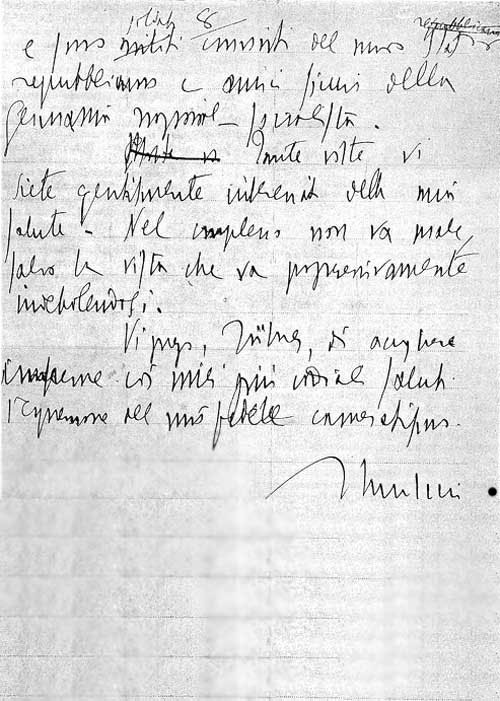 8
e sono convinti del nuovo Stato
repubblicano e amici sicuri della
Germania nazional-socialista.
Tante volte vi
siete gentilmente interessati della mia
salute - Nel complesso non va male,
salvo la vista che va progressivamente
indebolendosi.
Vi prego, Führer, di accogliere
insieme coi miei più cordiali saluti
l'espressione del mio fedele cameratismo.
Mussolini